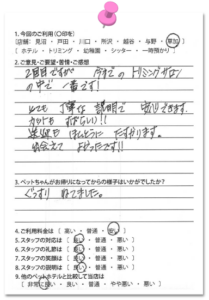 1. 今回のご利用(○)印を
[店舗: 見沼 ・ 戸田 ・ 川口 ・ 所沢 ・ 越谷 ・ 与野 ・ 草加]
[ ホテル ・ トリミング ・ 幼稚園 ・ シッター ・ 一時預かり ]
2. ご意見・ご要望・苦情・ご感想
2回目ですが 今までの トリミングサロン
の中で 一番です!
とても 丁寧な 説明で 安心できます。
カットも すばらしい!!
送迎も ほんとうに たすかります。
出会えて よかったです!!
3. ペットちゃんがお帰りになってからの様子はいかがでしたか?
ぐっすり ねてました。
4. ご利用料金は [ 高い ・ 普通 ・ 安い ]
5. スタッフの対応は [ 良い ・ 普通 ・ 悪い ]
6. スタッフの礼節は [ 良い ・ 普通 ・ 悪い ]
7. スタッフの笑顔は [ 良い ・ 普通 ・ 悪い ]
8. スタッフの説明は [ 良い ・ 普通 ・ 悪い ]
9. 他のペットホテルと比較して当店は
[ 非常に良い ・ 良い ・ 普通 ・ やや悪い ・ 悪い ]